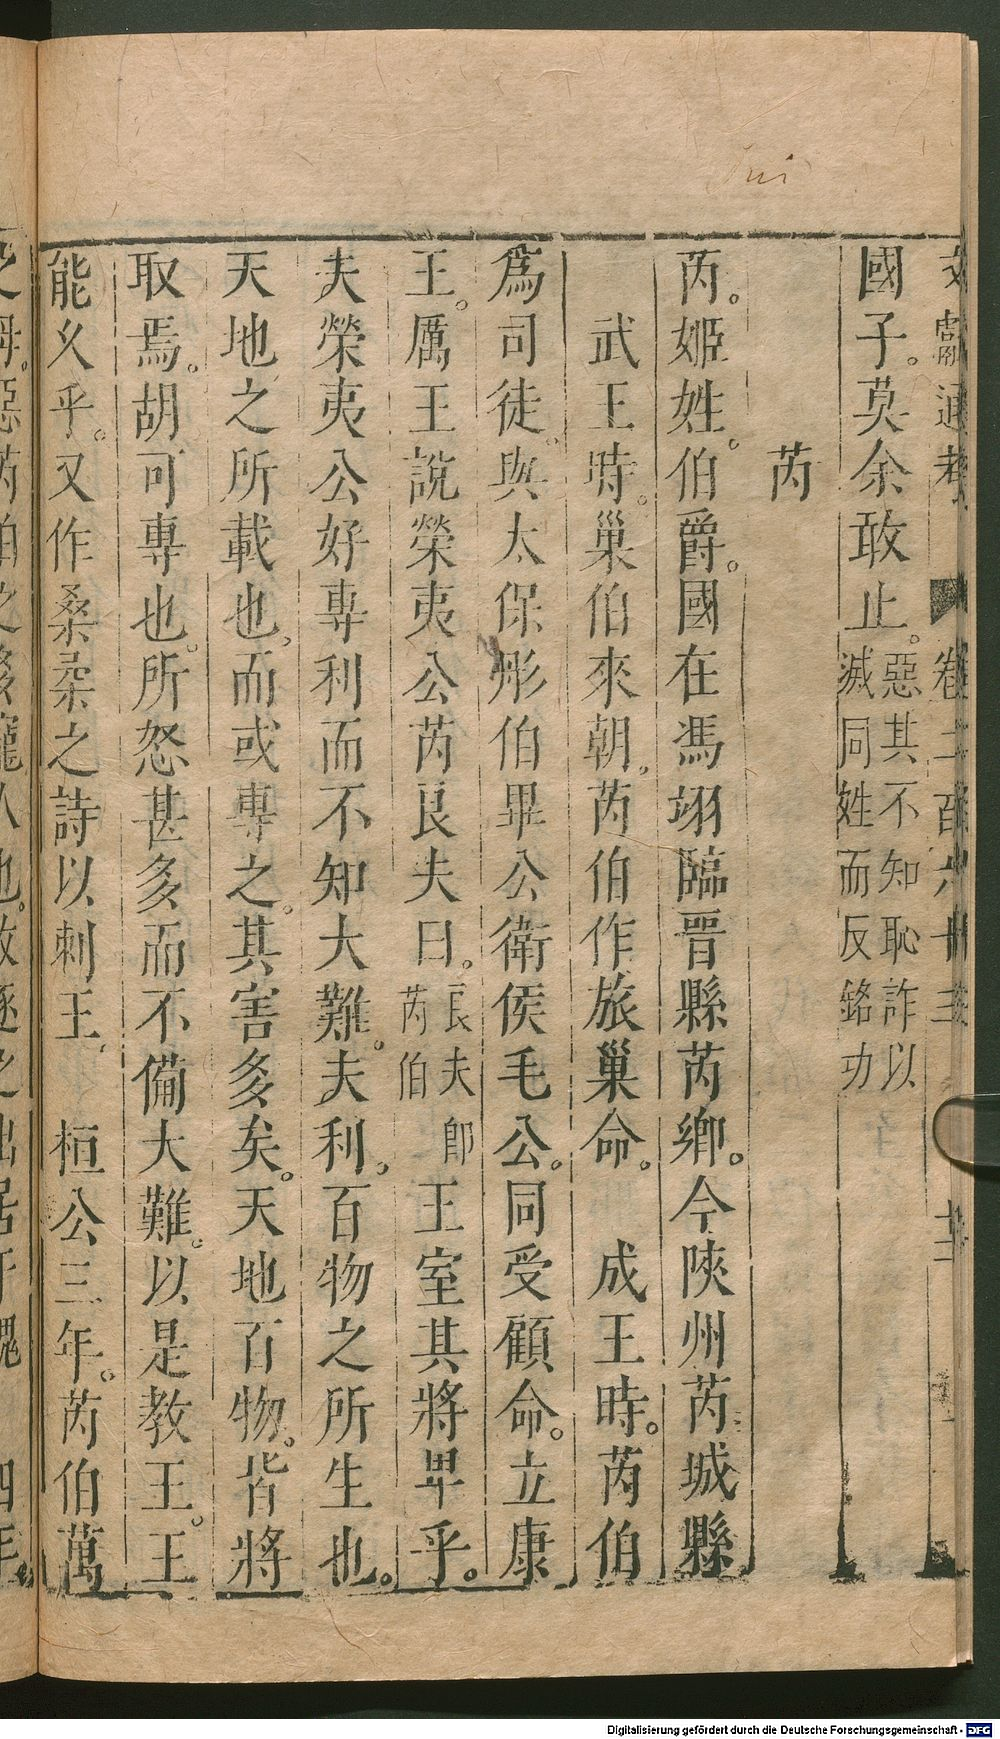 Jui
文獻通考 卷二百六十三 十三
國子。莫余敢止。惡其不知恥詐以滅同姓而反銘功
芮
芮。姬姓。伯爵。國在馮翊臨晉縣芮鄉。今陝州芮城縣
武王時。巢伯來朝。芮伯作旅巢命。 成王時。芮伯
爲司徒。與太保彤伯畢公衛侯毛公。同受顧命。立康
王。厲王說榮夷公芮良夫曰。良夫卽芮伯王室其將卑乎。
夫榮夷公好專利而不知大難。夫利。百物之所生也。
天地之所載也。而或專之。其害多矣。天地百物。皆將
取焉。胡可專也。所怒甚多而不備大難。以是教王。王
能久乎。又作桑柔之詩以刺王。 桓公三年。芮伯萬
之母。惡芮伯之多寵人也。故逐之出居于魏 四年。
Digitalisierung gefördert durch die Deutsche Forschungsgemeinschaft - DFG